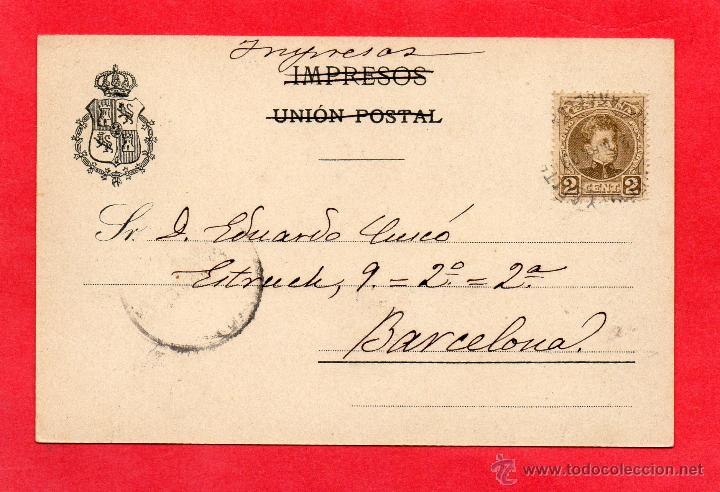 Impresos
IMPRESOS
UNIÓN POSTAL
ESPAÑA
2 CENT. 2
Sr. D. Eduardo Cuscó
Estruch, 9. = 2º = 2ª
Barcelona.
www.todocoleccion.net